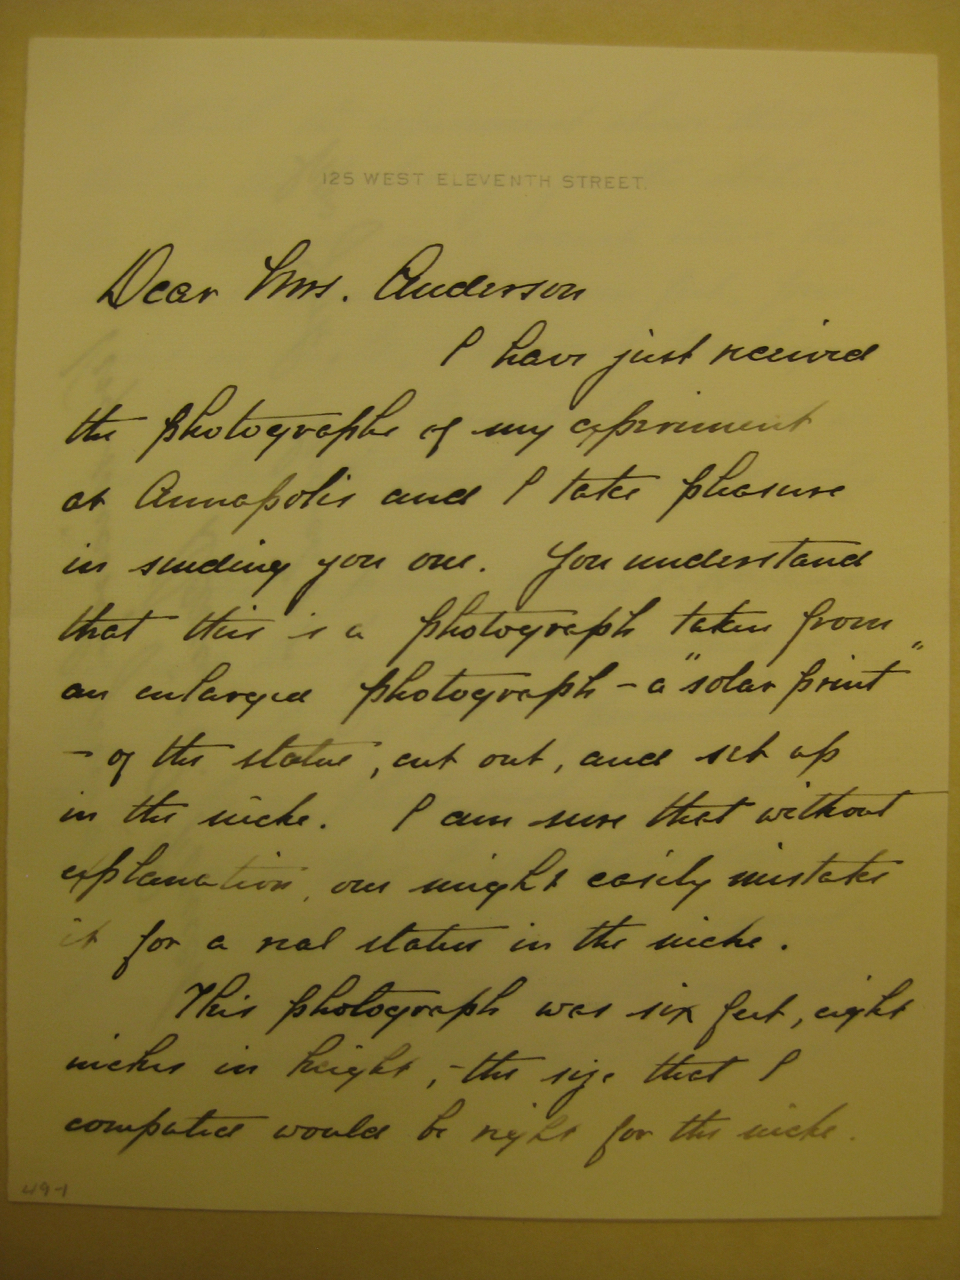 125 WEST ELEVENTH STREET.
Dear Mrs. Anderson
I have just received
the photographs of my experiment
at Annapolis and I take pleasure
in sending you one. You understand
that this is a photograph taken from
an enlarged photograph – a "solar print"
– of the statue, cut out, and set up
in the niche. I am sure that without
explanation, one might easily mistake
it for a real statue in the niche.
This photograph was six feet, eight
inches in height, – the size that I
computed would be right for the niche.
49-1